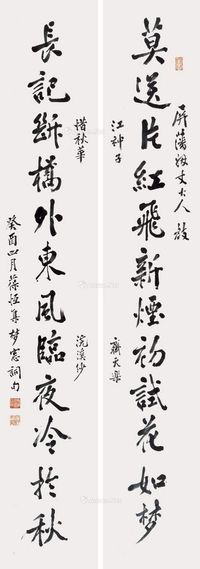 屏藩姻丈大人教
莫送片紅飛新煙初試花如夢
江神子
齊天樂
長記斷橋外東風臨夜冷於秋
惜秋華
浣溪沙
癸酉四月葆恆集夢窗詞句